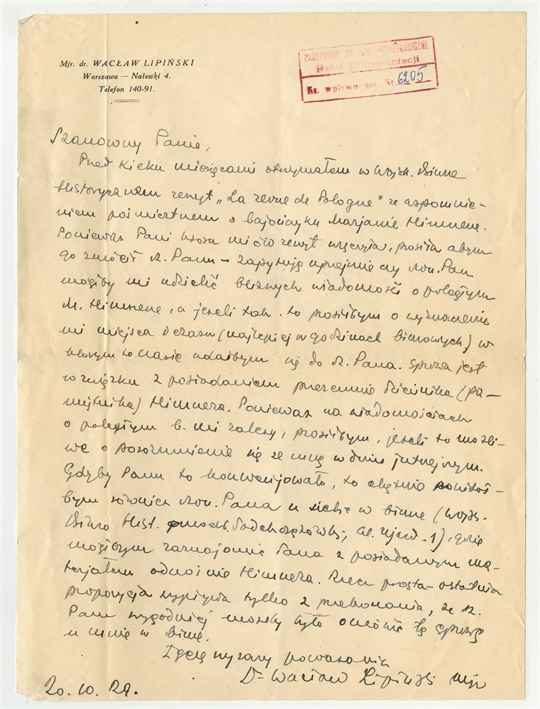 Mjr. dr. WACŁAW LIPIŃSKI
Warszawa — Nalewki 4.
Telefon 140-91.
PAŃSTWOWE
Dział Dokumentacji
Ks. wpływu poz. Nr 6205
Szanowny Panie,
Przed kilku miesiącami otrzymałem w Wojsk. Biurze
Historycznem zeszyt „La revue de Pologne" ze wspomnie-
niem pośmiertnem o bajończyku Marjanie Himnerze.
Ponieważ Pani która mi ów zeszyt wręczyła, prosiła abym
go zwrócił Sz. Panu – zapytuję uprzejmie czy Szan. Pan
mógłby mi udzielić bliższych wiadomości o poległym
M. Himnerze, a jeżeli tak, to prosiłbym o wyznaczenie
mi miejsca i czasu (najlepiej w godzinach biurowych) w
którym to czasie udałbym się do Sz. Pana. Sprawa jest
w związku z posiadaniem przezemnie dziennika (pa-
miętnika) Himnera. Ponieważ na wiadomościach
o poległym b. mi zależy, prosiłbym, jeżeli to możli-
we o porozumienie się ze mną w dniu jutrzejszym.
Gdyby Panu to konweniowało, to chętnie powitał-
bym również Szan. Pana u siebie w biurze (Wojsk.
Biuro Hist. gmach Podchorążówki, Al. Ujazd. 1), gdzie
mógłbym zaznajomić Pana z posiadanym ma-
terjałem odnośnie Himnera. Rzecz prosta – ostatnia
propozycja wypływa tylko z przekonania, że Sz.
Panu wygodniej mogłoby być omówić tę sprawę
u mnie w biurze.
Łączę wyrazy poważania
Dr Wacław Lipiński mjr
20.10.29.